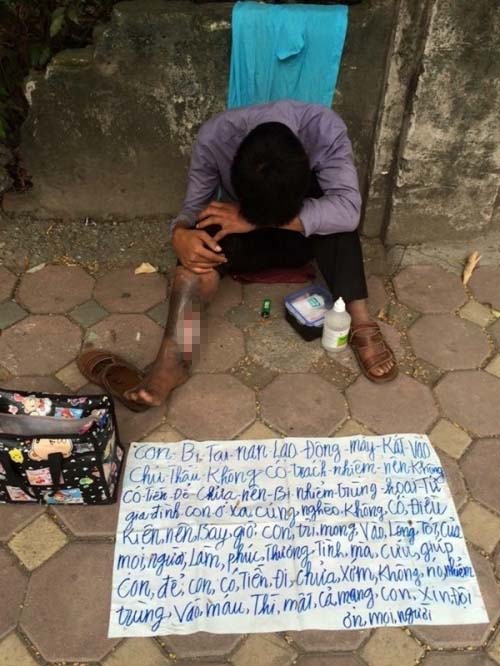 con Bị Tai nạn Lao Động máy Kắt Vào
Chủ Thầu Không có trách nhiệm nên Không
Có Tiền Để Chữa nên Bị nhiễm trùng hoại Tử
gia đình con ở xa cũng nghèo Không Có Điều
Kiện, nên, Bay, giờ, con, tri, mong, Vào, Lòng, Tốt, Của
mọi, người, Làm, phúc, Thương, Tình, ma, Cưu, giúp
Con, để, con, có, Tiền, Đi, chữa, Xớm, Không, nó, nhiễm
trùng, Vào, mau, Thì, mất, Cả, mạng, con, Xin, Đội
ơn, mọi, người